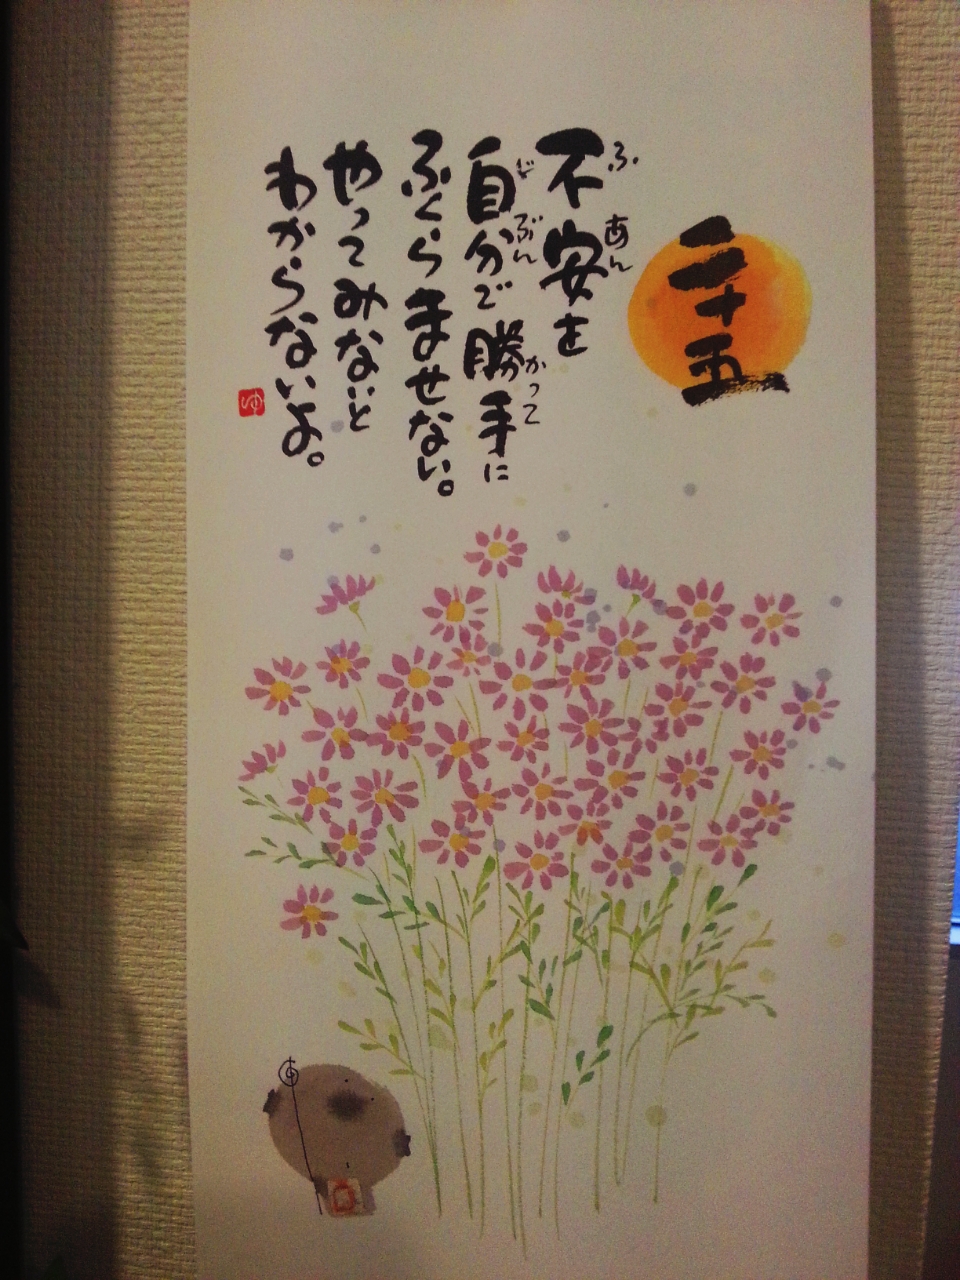 二十五
不安を
ふあん
自分で勝手に
じぶん かって
ふくらませない。
やってみないと
わからないよ。
ゆ